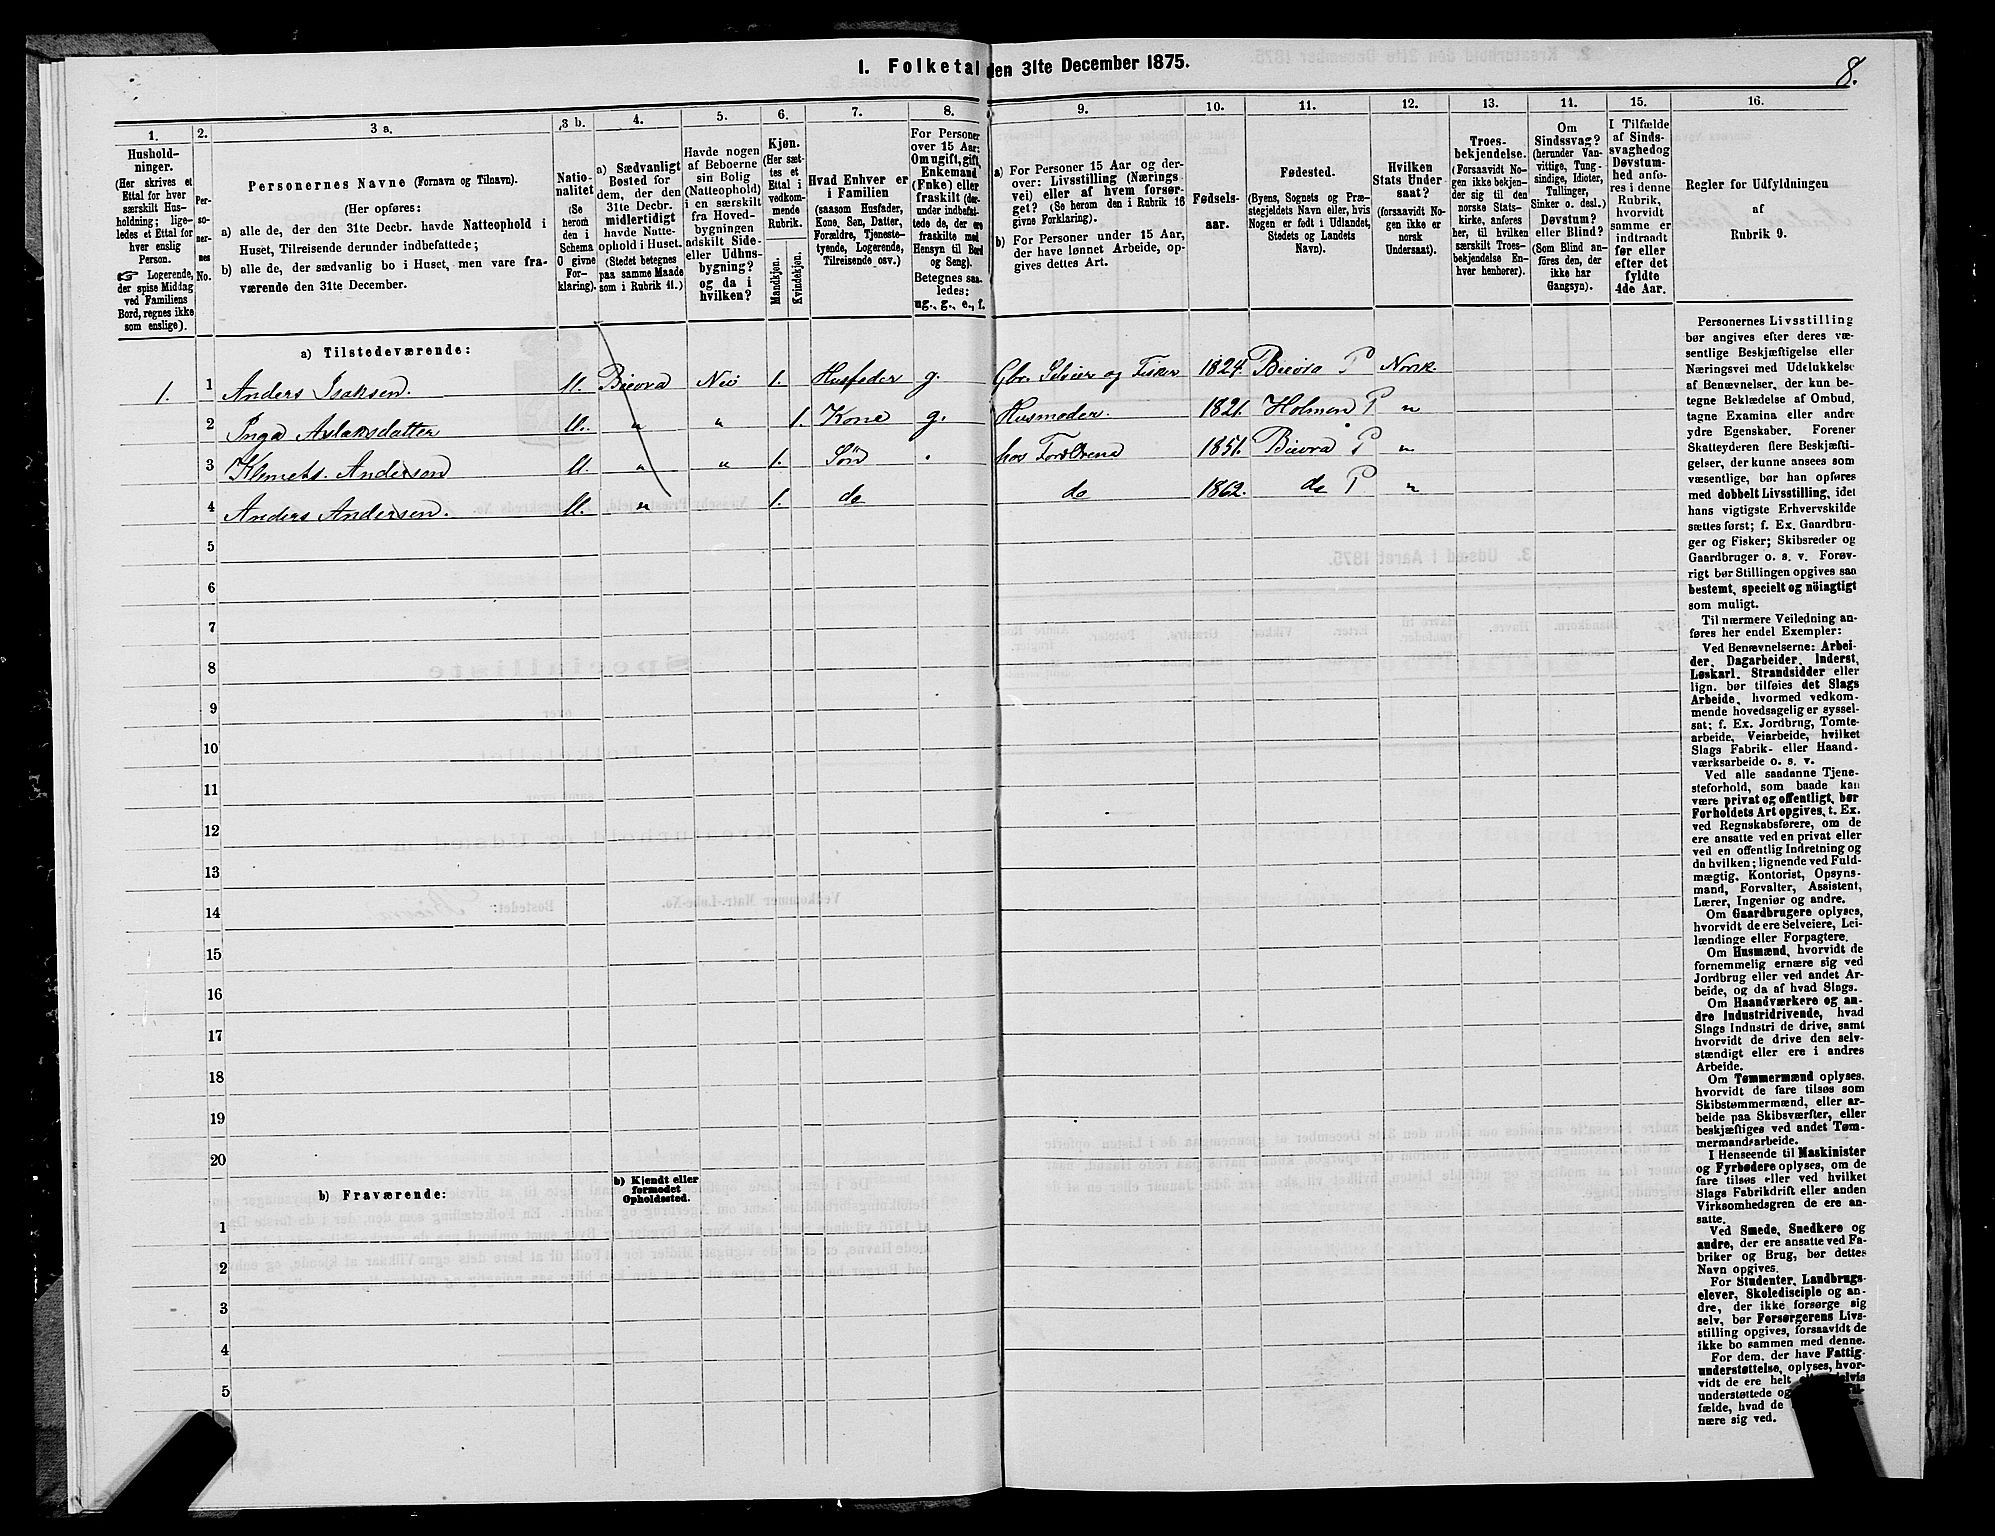 1. Folketal den 31te December 1875.
8.
1.
2.
3 a.
3 b.
4.
5.
6.
7.
8.
9.
10.
11.
12.
13.
14.
15.
16.
Hushold-
ninger.
(Her skrives et
Ettal for hver
særskilt Hus-
holdning; lige-
ledes et Ettal for
hver enslig
Person.
☞ Logerende,
der spise Middag
ved Familiens
Bord, regnes ikke
som enslige).
Per-
so-
ner-
nes
No.
Personernes Navne (Fornavn og Tilnavn).
(Her opføres:
a) alle de, der den 31te Decbr. havde Natteophold i
Huset, Tilreisende derunder indbefattede;
b) alle de, der sædvanlig bo i Huset, men vare fra-
værende den 31te December.
Natio-
nalitet
(Se
herom
den i
Schema
O givne
For-
klaring).
a) Sædvanligt
Bosted for
dem, der den
31te Decbr.
midlertidigt
havde Natte-
ophold i Huset.
(Stedet betegnes
paa samme Maade
som i Rubrik 11.)
Havde nogen
af Beboerne
sin Bolig
(Natteophold)
i en særskilt
fra Hoved-
bygningen
adskilt Side-
eller Udhus-
bygning?
og da i
hvilken?
Kjøn.
(Her sæt-
tes et
Ettal i
vedkom-
mende
Rubrik.
Mandkjøn.
Kvindekjøn.
Hvad Enhver er
i Familien
(saasom Husfader,
Kone, Søn, Datter,
Forældre, Tjeneste-
tyende, Logerende,
Tilreisende osv.)
For Personer
over 15 Aar:
Om ugift, gift,
Enkemand
(Enke) eller
fraskilt (der-
under indbefat-
tede de, der ere
fraskilte med
Hensyn til Bord
og Seng).
Betegnes saa-
ledes:
ug., g., e., f.
a) For Personer 15 Aar og der-
over: Livsstilling (Nærings-
vei) eller af hvem forsør-
get? (Se herom den i Rubrik 16
givne Forklaring).
b) For Personer under 15 Aar,
der have lønnet Arbeide, op-
gives dettes Art.
Fødsels-
aar.
Fødested.
(Byens, Sognets og Præ-
stegjeldets Navn eller, hvis
Nogen er født i Udlandet,
Stedets og Landets
Navn).
Hvilken
Stats Under
saat?
(forsaavidt No-
gen ikke er
norsk
Undersaat).
Troes-
bekjendelse.
(Forsaavidt No-
gen ikke bekjen-
der sig til den
norske Stats-
kirke, anføres
her, til hvilken
særskilt Troes-
bekjendelse En-
hver henhører).
Om
Sindssvag?
(herunder Van-
vittige, Tung-
sindige, Idioter,
Tullinger,
Sinker o. desl.)
Døvstum?
eller Blind?
(Som Blind an-
føres den, der
ikke har
Gangsyn).
I Tilfælde
af Sinds-
svaghed og
Døvstum-
hed anfø-
res i denne
Rubrik,
hvorvidt
samme er
indtraadt
før eller
efter det
fyldte
4de Aar.
Regler for Udfyldningen
af
Rubrik 9.
a) Tilstedeværende:
1. 1 Anders Isaksen. Bievra Nei 1. Husfader g. Gbr. Selveier og Fisker 1824. Bievra P Norsk
2 Inga Aslaksdatter " " 1. Kone g. Husmoder. 1821. Holmen P "
3 Klemets. Andersen " " 1. Søn hos Forældrene 1851. Bievra P "
4 Anders Andersen. " 1. do do 1862. do P "
5
6
7
8
9
10
11
12
13
14
15
16
17
18
19
20
b) Fraværende:
b) Kjendt eller
formodet
Opholdssted.
1
2
3
4
5
Personernes Livsstilling
bør angives efter deres væ-
sentlige Beskjæftigelse eller
Næringsvei med Udelukkelse
af Benævnelser, der kun be-
tegne Beklædelse af Ombud,
tagne Examina eller andre
ydre Egenskaber. Forener
Skatteyderen flere Beskjæfti-
gelser, der kunne ansees som
væsentlige, bør han opføres
med dobbelt Livsstilling, idet
hans vigtigste Erhvervskilde
sættes først; f. Ex. Gaardbru-
ger og Fisker; Skibsreder og
Gaardbruger o. s. v. Forøv-
rigt bør Stillingen opgives saa
bestemt, specielt og nöiagtigt
som muligt.
Til nærmere Veiledning an-
føres her endel Exempler:
Ved Benævnelserne: Arbei-
der, Dagarbeider, Inderst,
Løskarl, Strandsidder eller
lign. bør tilføies det Slags
Arbeide, hvormed vedkom-
mende hovedsagelig er syssel-
sat; f. Ex. Jordbrug, Tomte-
arbeide, Veiarbeide, hvilket
Slags Fabrik- eller Haand-
værksarbeide o. s. v.
Ved alle saadanne Tjene-
steforhold, som baade kan
være privat og offentligt, bør
Forholdets Art opgives, t. Ex.
ved Regnskabsførere, om de
ere ansatte ved en privat eller
ved en offentlig Indretning og
da hvilken; lignende ved Fuld-
mægtig, Kontorist, Opsyns-
mand, Forvalter, Assistent,
Lærer, Ingeniør og andre.
Om Gaardbrugere oplyses,
hvorvidt de ere Selveiere, Lei-
lændinge eller Forpagtere.
Om Husmænd, hvorvidt de
fornemmelig ernære sig ved
Jordbrug eller ved andet Ar-
beide, og da af hvad Slags.
Om Haandværkere og an-
dre Industridrivende, hvad
Slags Industri de drive, samt
hvorvidt de drive den selv-
stændigt eller ere i andres
Arbeide.
Om Tømmermænd oplyses,
hvorvidt de fare tilsøs som
Skibstømmermænd, eller ar-
beide paa Skibsværfter, eller
beskjæftiges ved andet Tøm-
mermandsarbeide.
I Henseende til Maskinister
og Fyrbødere oplyses, om de
fare tilsøs eller ved hvilket
Slags Fabrikdrift eller anden
Virksomhedsgren de ere an-
satte.
Ved Smede, Snedkere og
andre, der ere ansatte ved Fa-
briker og Brug, bør dettes
Navn opgives.
For Studenter, Landbrugs-
elever, Skoledisciple og an-
dre, der ikke forsørge sig
selv, bør Forsørgerens Livs-
stilling opgives, forsaavidt de
ikke bo sammen med denne.
For dem, der have Fattig-
understøttelse, oplyses, hvor-
vidt de ere helt
understøttede og
fælde, hvad de
nære sig ved.